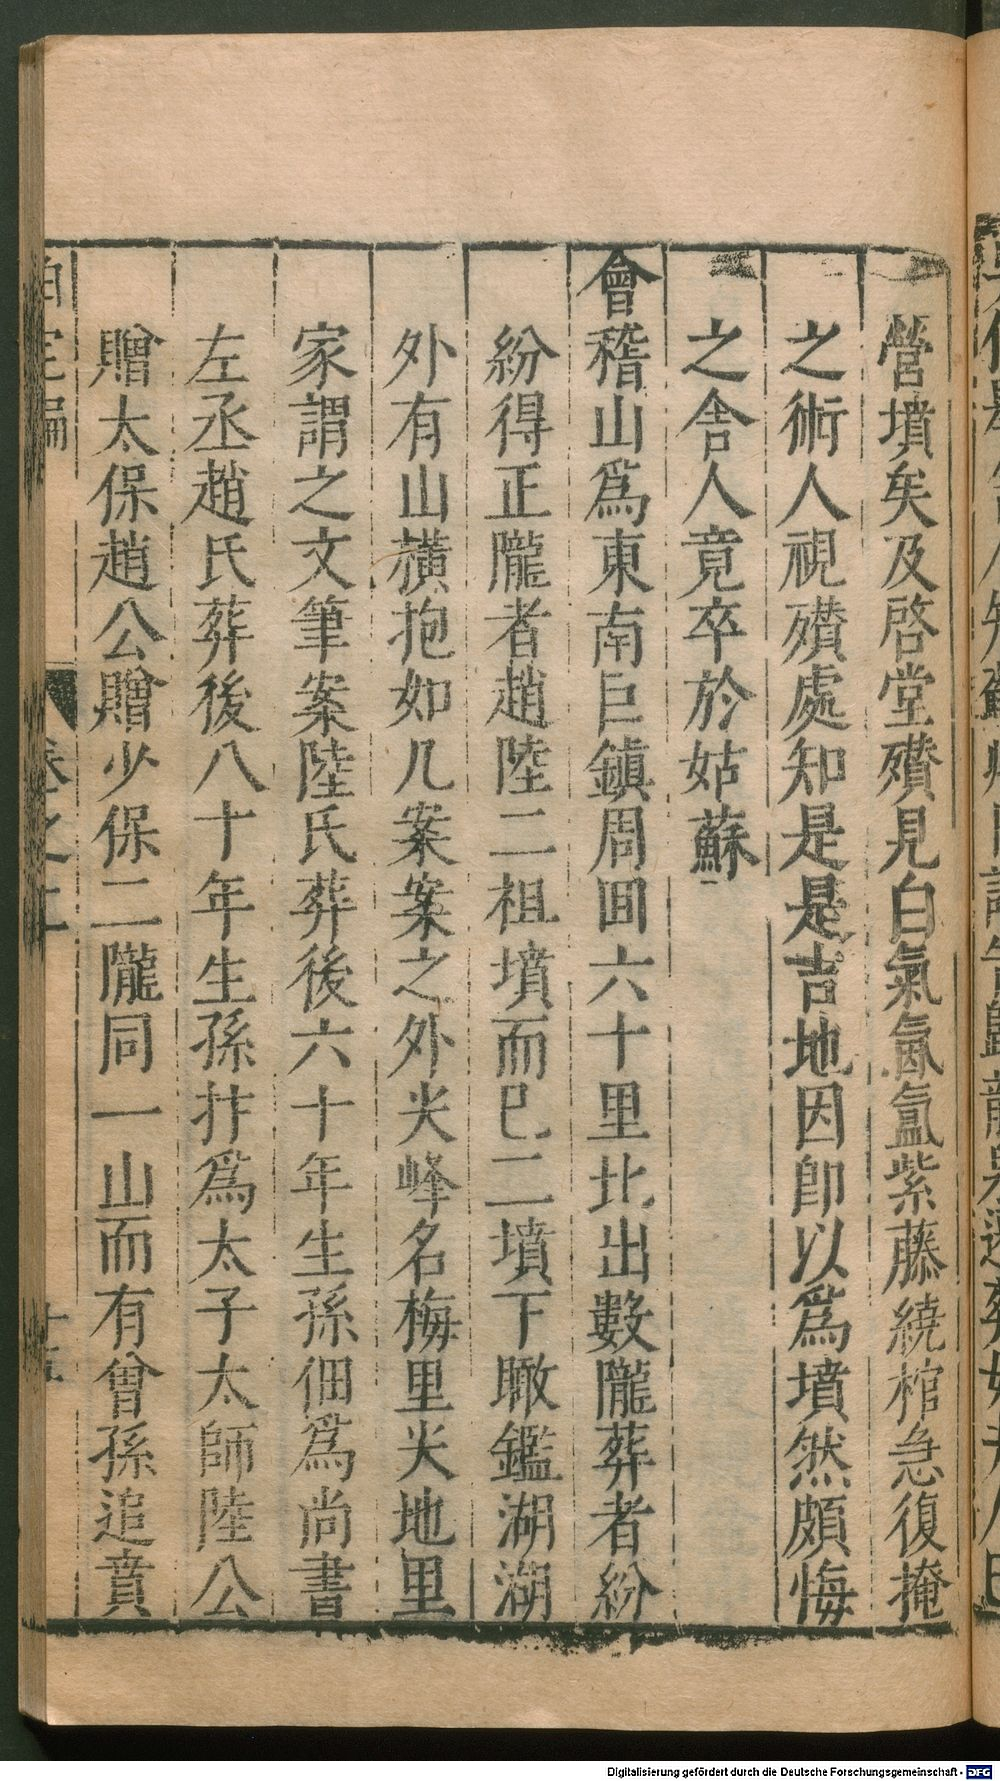 營墳矣及啓堂殯見白氣氤氳紫藤繞棺急復掩
之術人視殯處知是是吉地因卽以爲墳然頗悔
之舍人竟卒於姑蘇
會稽山爲東南巨鎮周回六十里北出數隴葬者紛
紛得正隴者趙陸二祖墳而已二墳下瞰鑑湖湖
外有山橫抱如几案案之外尖峰名梅里尖地里
家謂之文筆案陸氏葬後六十年生孫佃爲尚書
左丞趙氏葬後八十年生孫抃爲太子太師陸公
贈太保趙公贈少保二隴同一山而有曾孫追賁
泊宅編
卷之二
十五
Digitalisierung gefördert durch die Deutsche Forschungsgemeinschaft - DFG